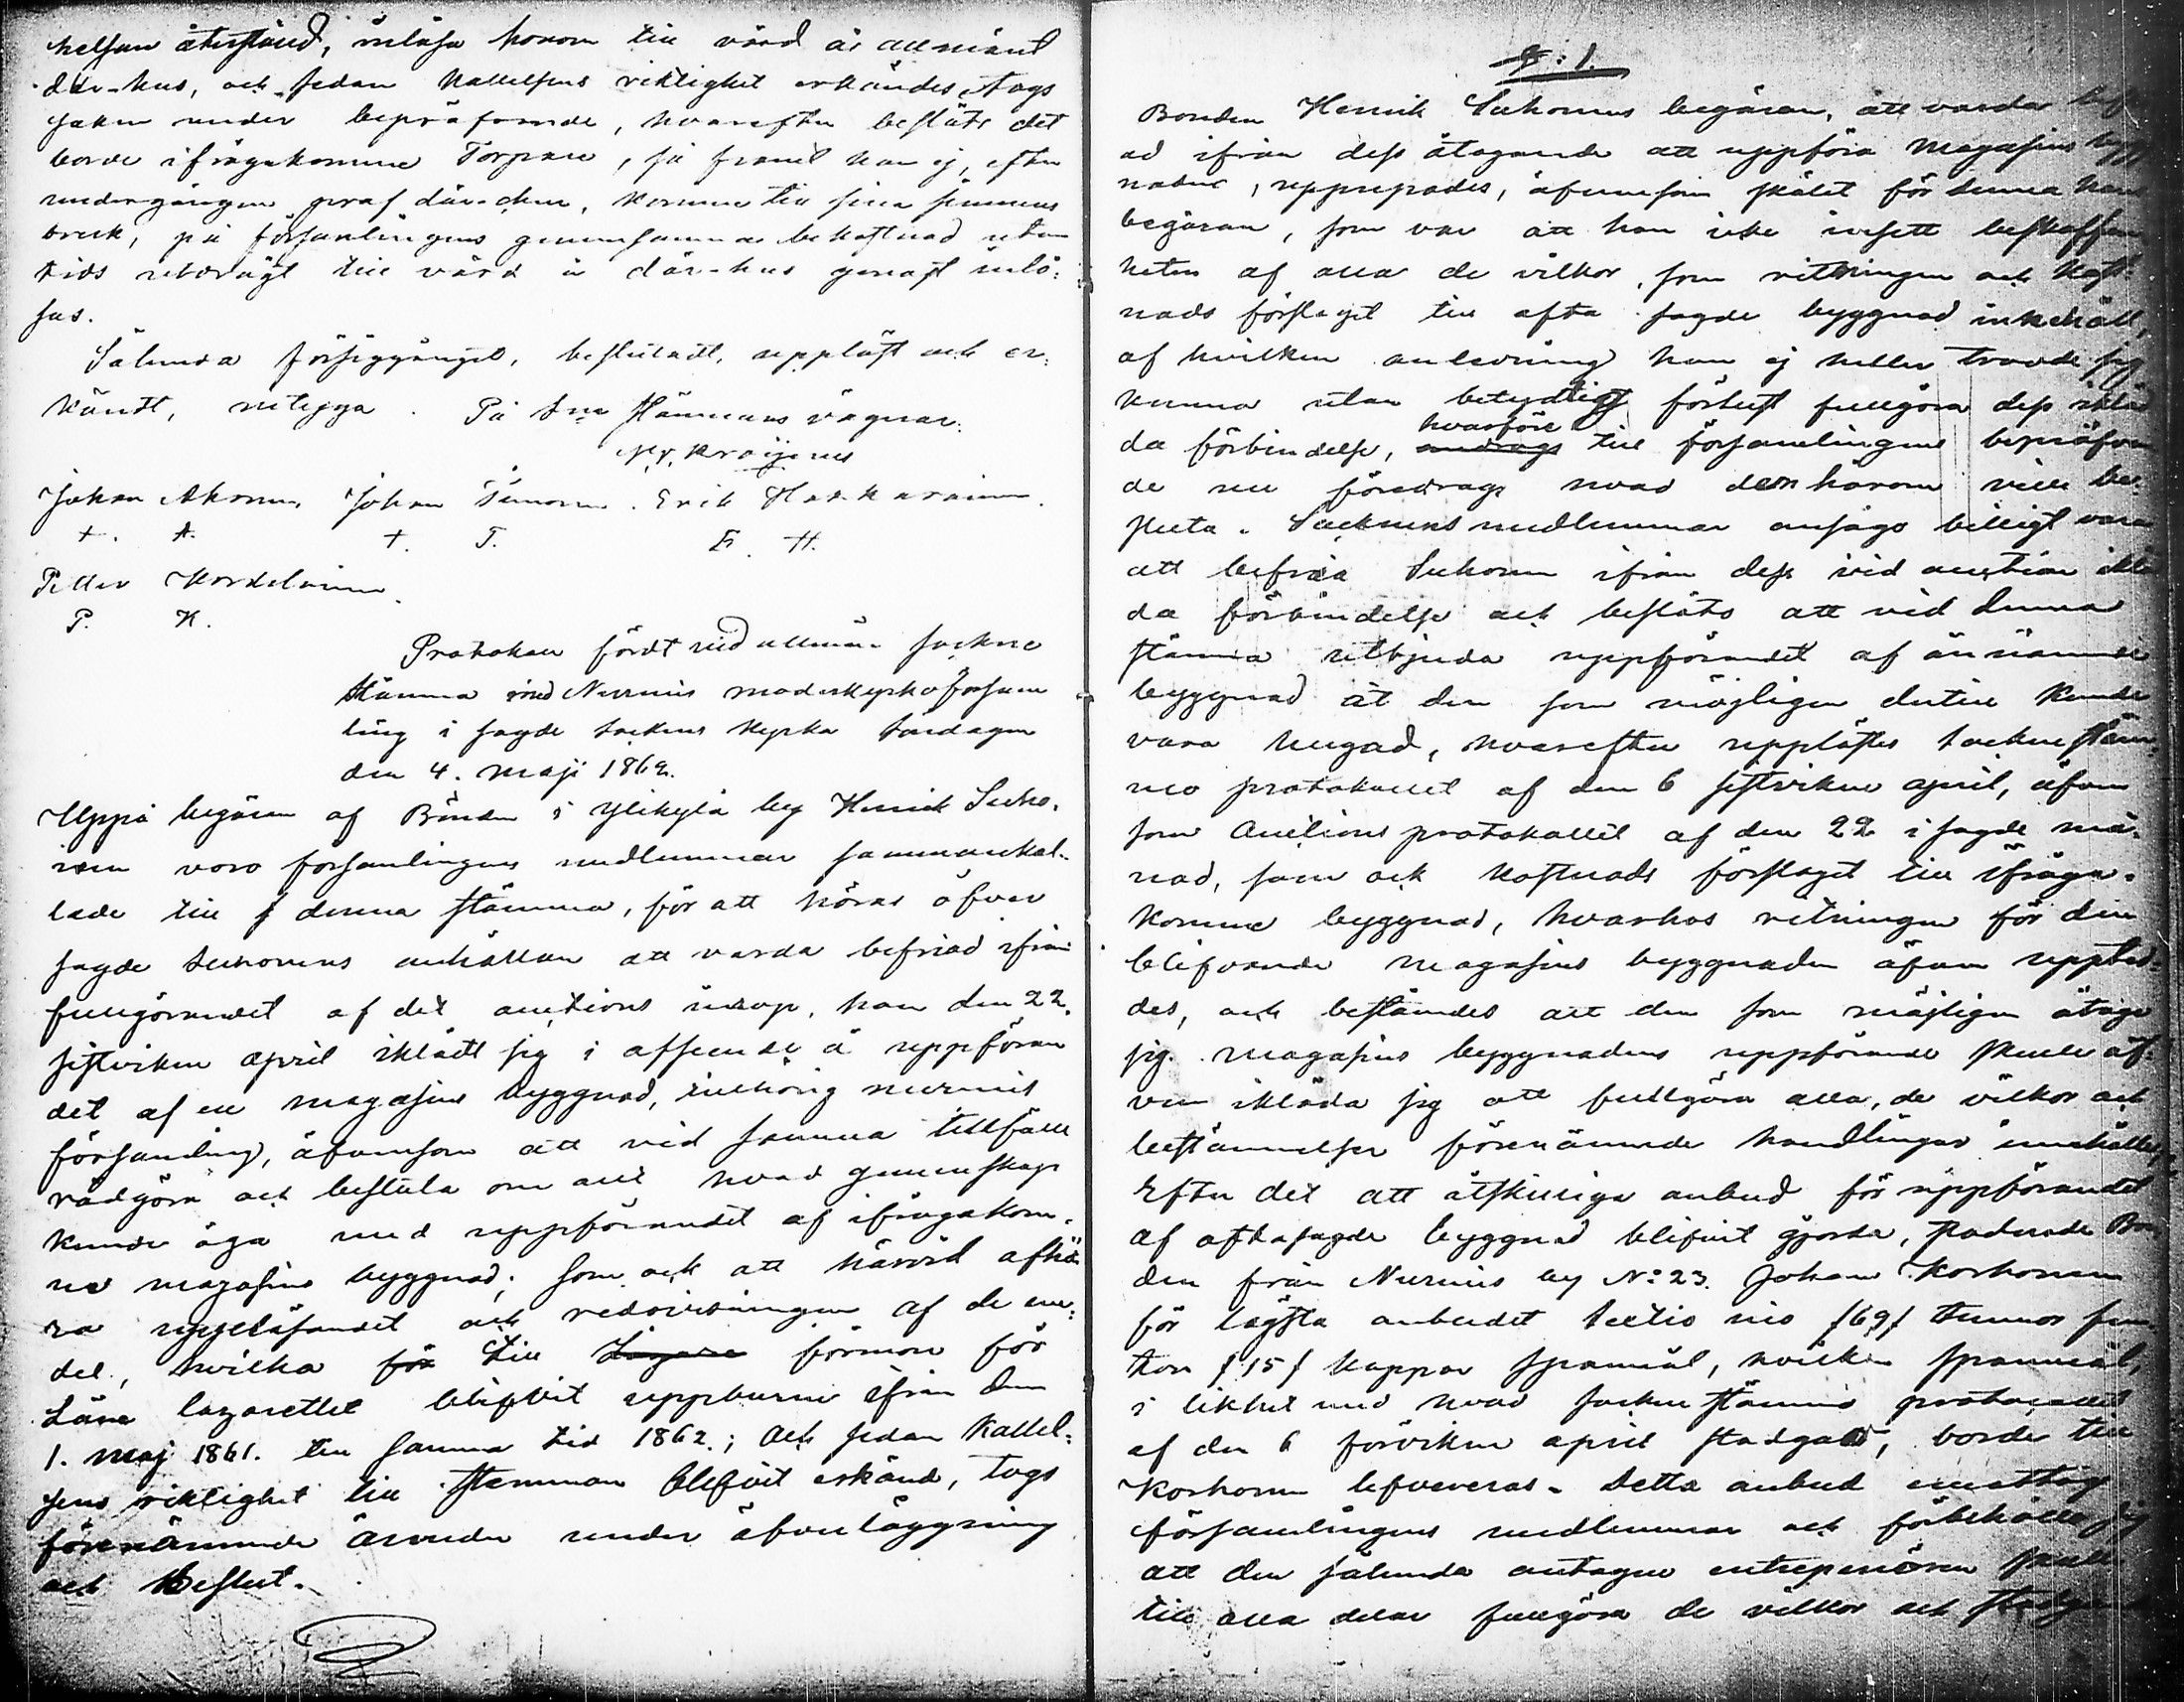 helsan återstäld, inlösa honom till vård å allmänt
dår-hus, och sedan kallelsens riktighet erkändes, togs
saken under bepröfvande, hvarefter beslöts det
borde ifrågakomne Torpare, så framt han ej, efter
undergången graf dårckur, komme till sina sinnens
bruk, på församlingens gemensamma bekostnad utan
tids utdrägt till vård å dår-hus genast inlö-
sas.
Sålunda försiggånget, beslutadt, uppläst och er-
kändt, intyga. På Sne Stämmans vägnar:
Johan Akonen, Johan Timonen. Erik Hakkarainen.
+. A. +. T. E. H.
Petter Kordelainen.
P. K.
Protokoll fördt vid allmän sockne
stämma med Nurmis moderkyrko försam
ling i sagde Sockens kyrka Söndagen
den 4. Maji 1862.
Uppå begäran af Bonden i Ylikylä by Henrik Suho-
nen voro församlingens medlemmar sammankal-
lade till denna stämma, för att höras öfver
sagde Suhonens anhållan att varda befriad ifrån
fullgörandet af det auctions inrop, han den 22.
sistvikne april iklädt sig i afseende å uppföran
det af en magasins byggnad, tillhörig Nurmis
församling, äfvensom att vid samma tillfälle
rådgöra och besluta om allt hvad gemenskap
kunde äga med uppförandet af ifrågakom-
ne magasins byggnad; som ock att härvid afhö-
ra uppläsandet och redovisningen af de me-
del, hvilka för till Lazare förmon för
Läne lazarettet blifvit uppburne ifrån den
1. maj 1861. till samma tid 1862.; Och sedan kallel-
sens riktighet till stämman blifvit erkänd, togs
förenämnde ärenden under öfverläggning
och Beslut.
§: 1.
Bonden Henrik Suhonens begäran, att varda
ad ifrån dess åtagande att uppföra Magasins
naden, upprepades, äfvensom skälet för denna hans
begäran, som var att han icke insett beskaffen
heten af alla de vilkor, som ritningen och kost-
nads förslaget till ofta sagde byggnad innehöll,
af hvilken anledning han ej heller trodde sig
kunna utan betydlig förlust fullgöra dess iklä
da förbindelse, andrags hvarföre till församlingens bepröfvan
de nu föredrags hvad den härom ville be-
sluta. Socknens medlemmar ansågo billigt vara
att befria Suhonen ifrån dess vid auction iklä
da förbindelse och beslöts att vid denna
stämma utbjuda uppförandet af ännämnde
byggnad åt den som möjligen dertill kunde
vara hugad, hvarefter upplästes Sockne stäm
mo protokollet af den 6 sistvikne april, äfven
som Auctions protokollet af den 22 i sagde må-
nad, som ock kostnads förslaget till ifråga-
komne byggnad, hvarhos ritningen för den
blifvande magasins byggnaden äfven uppted-
des, och bestämdes att den som möjligen åtoge
sig magasins byggnadens uppförande skulle äf-
ven ikläda sig att fullgöra alla, de vilkor och
bestämmelser förenämnde handlingar innehålla.
Efter det att åtskilliga anbud för uppförandet
af oftasagde byggnad blifvit gjorde, stadnade Bon
den från Nurmis by No: 23. Johan Korhonen
för lägsta anbudet sextio nio /69/ tunnor fem
ton /15/ kappar spanmål, hvilken spanmål,
i likhet med hvad sockne stämmo protocollet
af den 6 förvikne april stadgade, borde till
Korhonen lefvereras. Detta anbud emottog
församlingens medlemmar och förbehöll sig
att den sålunda antagne entreprenören skulle
till alla delar fullgöra de vilkor och